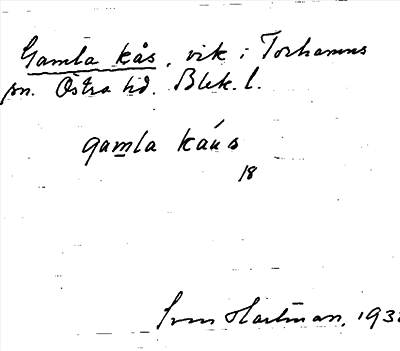 Gamla kås, vik i Torhamns
sn. Östra hd. Blek. l.
gamla káus
18
Sven Hartman, 193